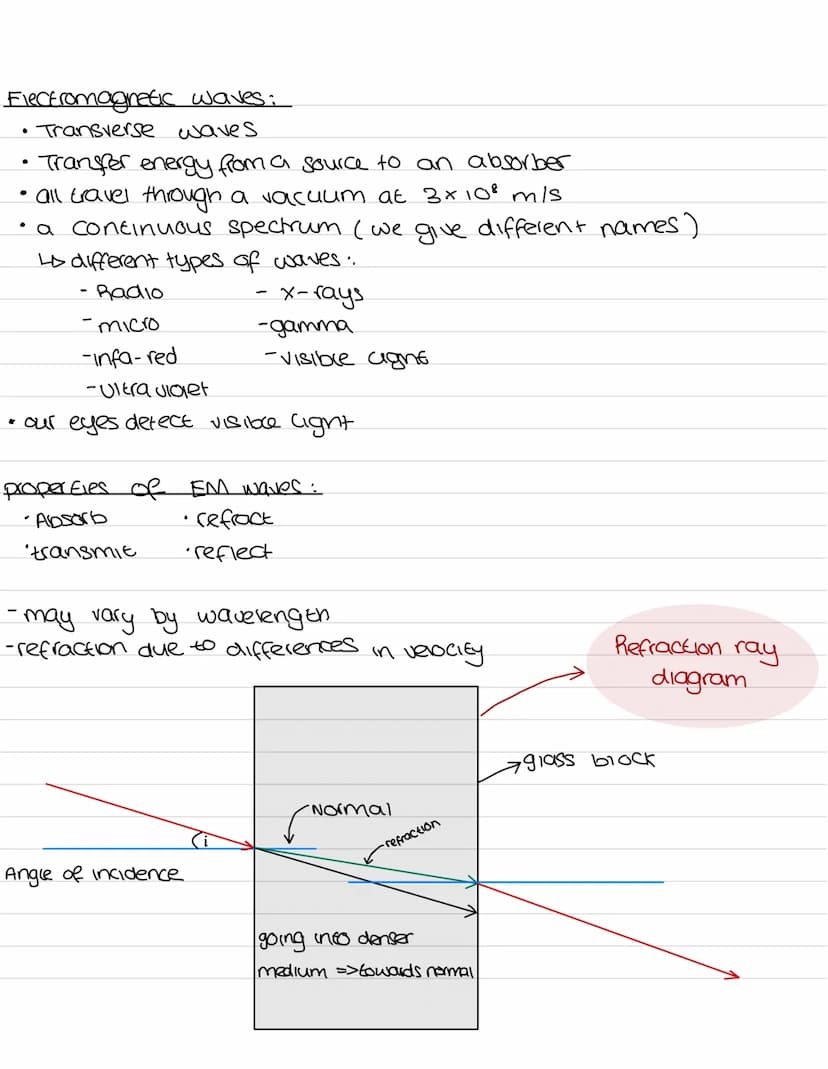 Electromagnetic waves:
• Transverse waves
• Transfer energy from a source to an absorber
• all travel through a vacuum at 3×10⁸ m/s
• a continuous spectrum (we give different names)
↳ different types of waves:
- Radio - x-rays
- micro - gamma
- infa-red - visible light
- ultraviolet
• our eyes detect visible light
properties of EM waves:
• Absorb • refract
• transmit • reflect
- may vary by wavelength
- refraction due to differences in velocity
Refraction ray
diagram
glass block
Normal
refraction
i
Angle of incidence
going into denser
medium => towards normal